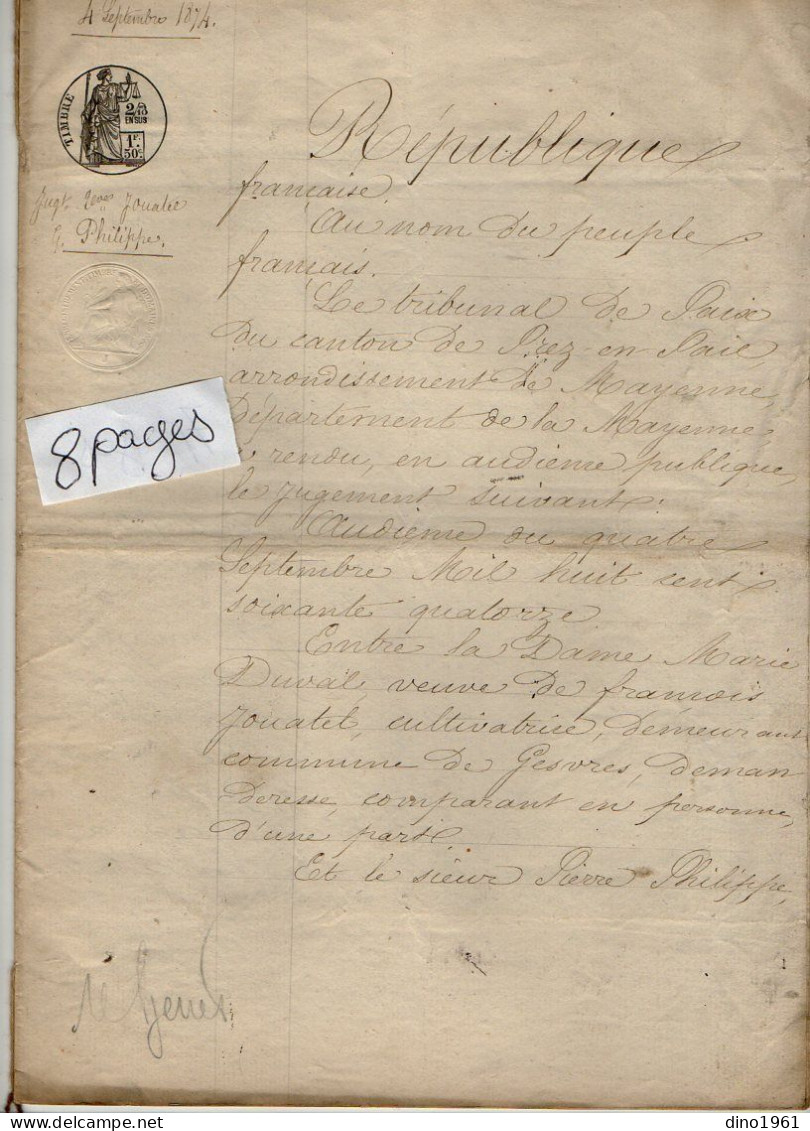 4 Septembre 1874.
TIMBRE
2/10
EN SUS
1F.
50c.
Jugt. Jouatel
Philippe.
8 pages
République
française.
Au nom du peuple
français.
Le tribunal de Paix
du canton de Prez-en-Pail
arrondissement de Mayenne,
Département de la Mayenne,
a rendu, en audience publique,
le jugement suivant:
Audience du quatre
Septembre Mil huit cent
soixante quatorze
Entre la Dame Marie
Duval, veuve de françois
Jouatel, cultivatrice, demeurant
commune de Gesvres, deman
deresse, comparant en personne,
d'une part.
Et le sieur Pierre Philippe,
dino1961